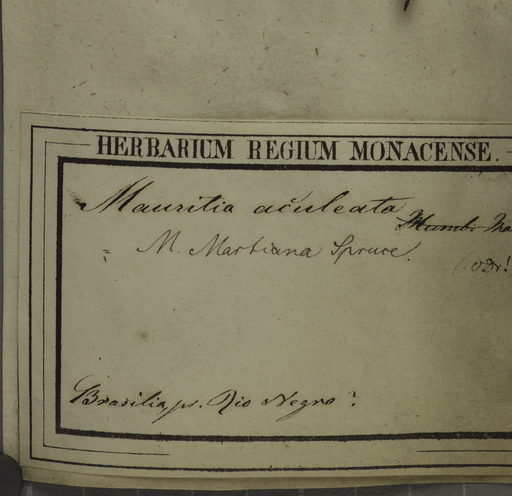 HERBARIUM REGIUM MONACENSE.
Mauritia aculeata Humb.
= M. Martiana Spruce.
Brasilia, pr. Rio Negro?